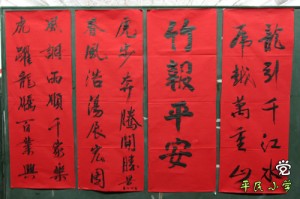 龍引千江水
虎越萬重山
竹毅平安
虎步奔騰開勝
春風浩蕩展宏圖
風調雨順千家樂
虎躍龍騰百業興
平民小学